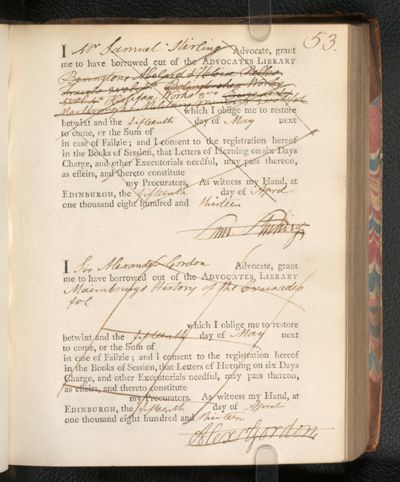 53.
I Mr Samuel Stirling Advocate, grant
me to have borrowed out of the ADVOCATES LIBRARY
Beringtons Abelard & Heloisa
Bolingbrokes Works
which I oblige me to restore
betwixt and the fifteenth day of May next
to come, or the Sum of
in case of Failzie; and I consent to the registration hereof
in the Books of Session, that Letters of Horning on six Days
Charge, and other Executorials needful, may pass thereon,
as effeirs, and thereto constitute
my Procurators. As witness my Hand, at
EDINBURGH, the fifteenth day of April
one thousand eight hundred and thirteen
Saml Stirling
I Sir Alexander Gordon Advocate, grant
me to have borrowed out of the ADVOCATES LIBRARY
Maimbourg's History of the Crusades
fol
which I oblige me to restore
betwixt and the fifteenth day of May next
to come, or the Sum of
in case of Failzie; and I consent to the registration hereof
in the Books of Session, that Letters of Horning on six Days
Charge, and other Executorials needful, may pass thereon,
as effeirs, and thereto constitute
my Procurators. As witness my Hand, at
EDINBURGH, the fifteenth day of April
one thousand eight hundred and thirteen
Alexr Gordon